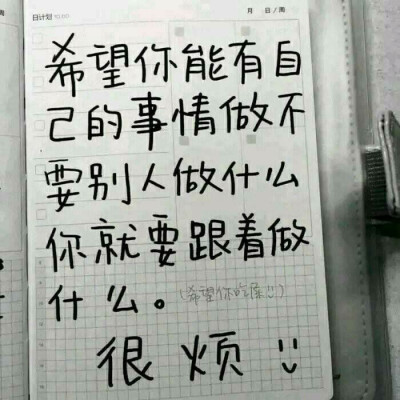 日计划
月 日/周
希望你能有自
己的事情做不
要别人做什么
你就要跟着做
什么。(希望你吃屎!!)
很烦